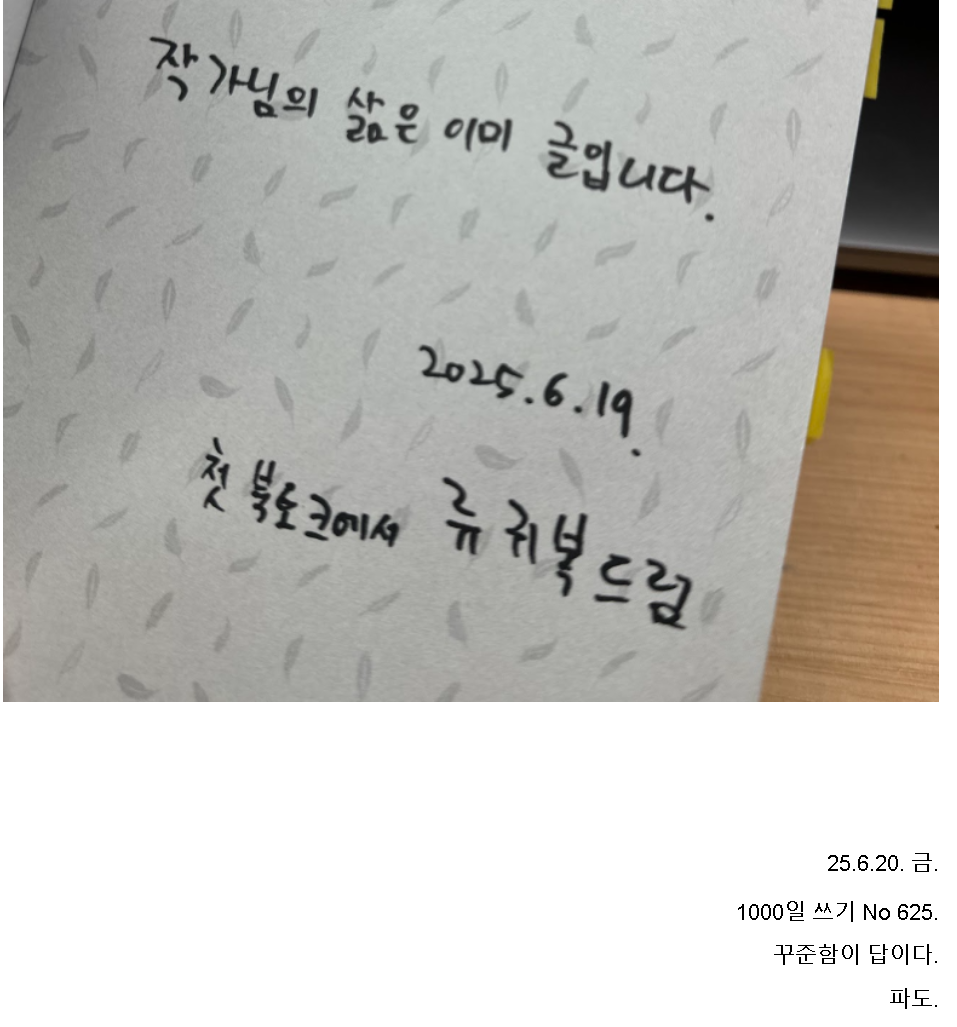 작가님의 삶은 이미 글입니다.
2025.6.19.
첫 북토크에서 류귀복 드림
25.6.20. 금.
1000일 쓰기 No 625.
꾸준함이 답이다.
파도.